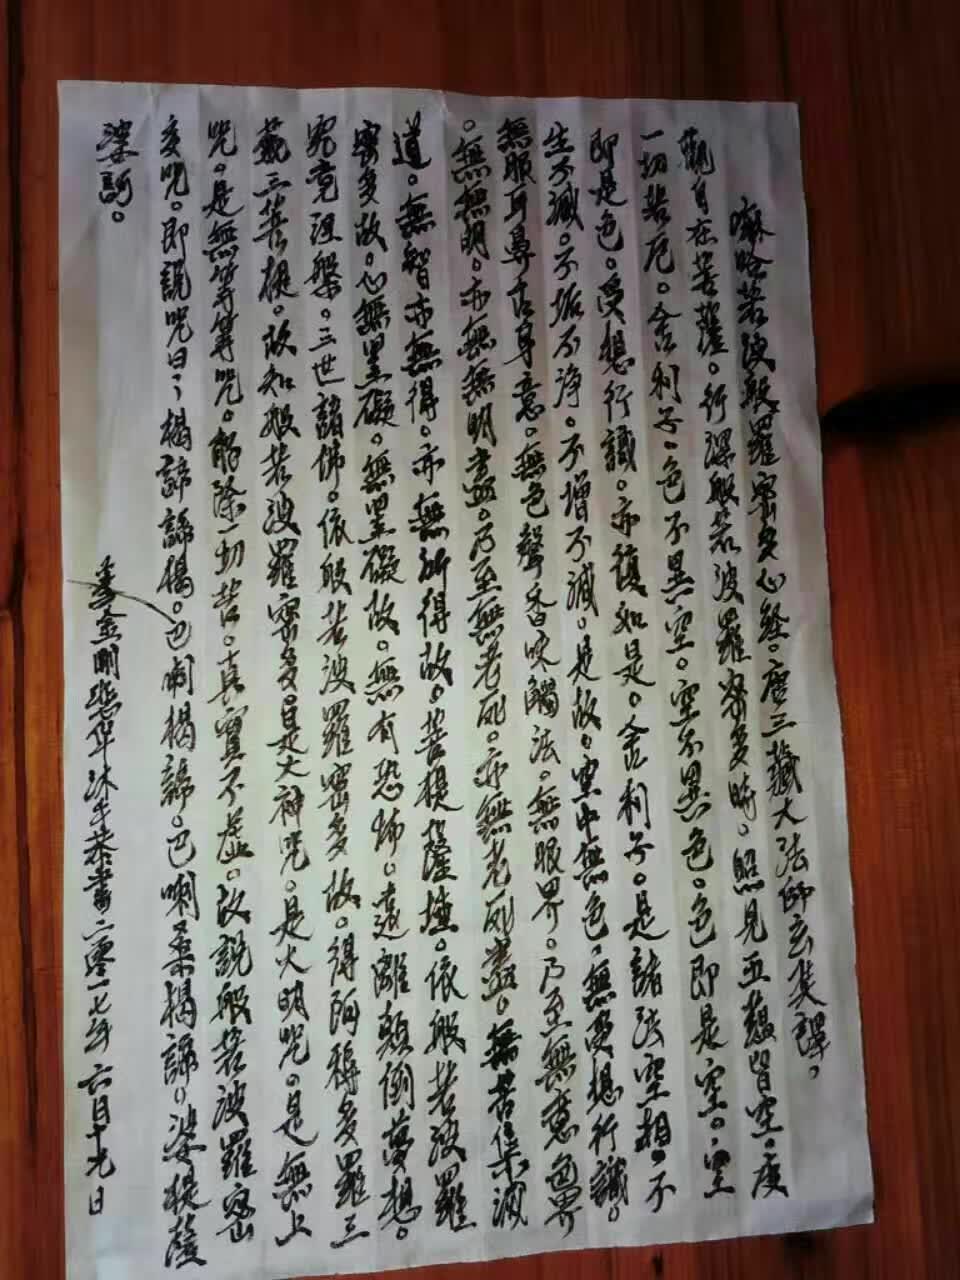 般若波羅密多心經。唐三藏大法師玄奘譯。
觀自在菩薩。行深般若波羅密多時。照見五蘊皆空。度
一切苦厄。舍利子。色不異空。空不異色。色即是空。空
即是色。受想行識。亦復如是。舍利子。是諸法空相。不
生不滅。不垢不淨。不增不減。是故。空中無色。無受想行識。
無眼耳鼻舌身意。無色聲香味觸法。無眼界。乃至無意色界
。無無明。亦無無明盡。乃至無老死。亦無老死盡。無苦集滅
道。無智亦無得。亦無所得故。菩提薩埵。依般若波羅
密多故。心無罣礙。無罣礙故。無有恐怖。遠離顛倒夢想。
究竟涅槃。三世諸佛。依般若波羅密多故。得阿耨多羅三
藐三菩提。故知般若波羅密多。是大神咒。是大明咒。是無上
咒。是無等等咒。能除一切苦。真實不虛。故說般若波羅密
多咒。即說咒曰：揭諦諦揭。巴喇揭諦。巴喇桑揭諦。婆提薩
婆訶。
金剛悲 沐手恭書二零一七年六月十九日